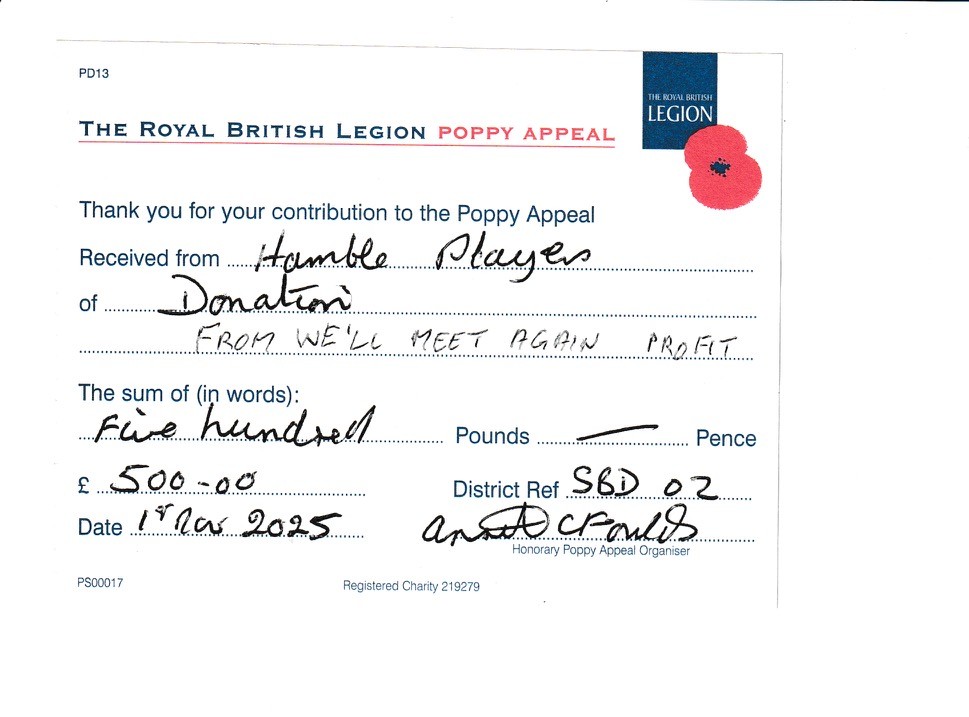 PD13
THE ROYAL BRITISH
LEGION
THE ROYAL BRITISH LEGION POPPY APPEAL
Thank you for your contribution to the Poppy Appeal
Received from Hamble Players
of Donation
FROM WE'LL MEET AGAIN PROFIT
The sum of (in words):
Five hundred Pounds — Pence
£ 500-00 District Ref SBD 02
Date 1st Nov 2025
Honorary Poppy Appeal Organiser
PS00017 Registered Charity 219279